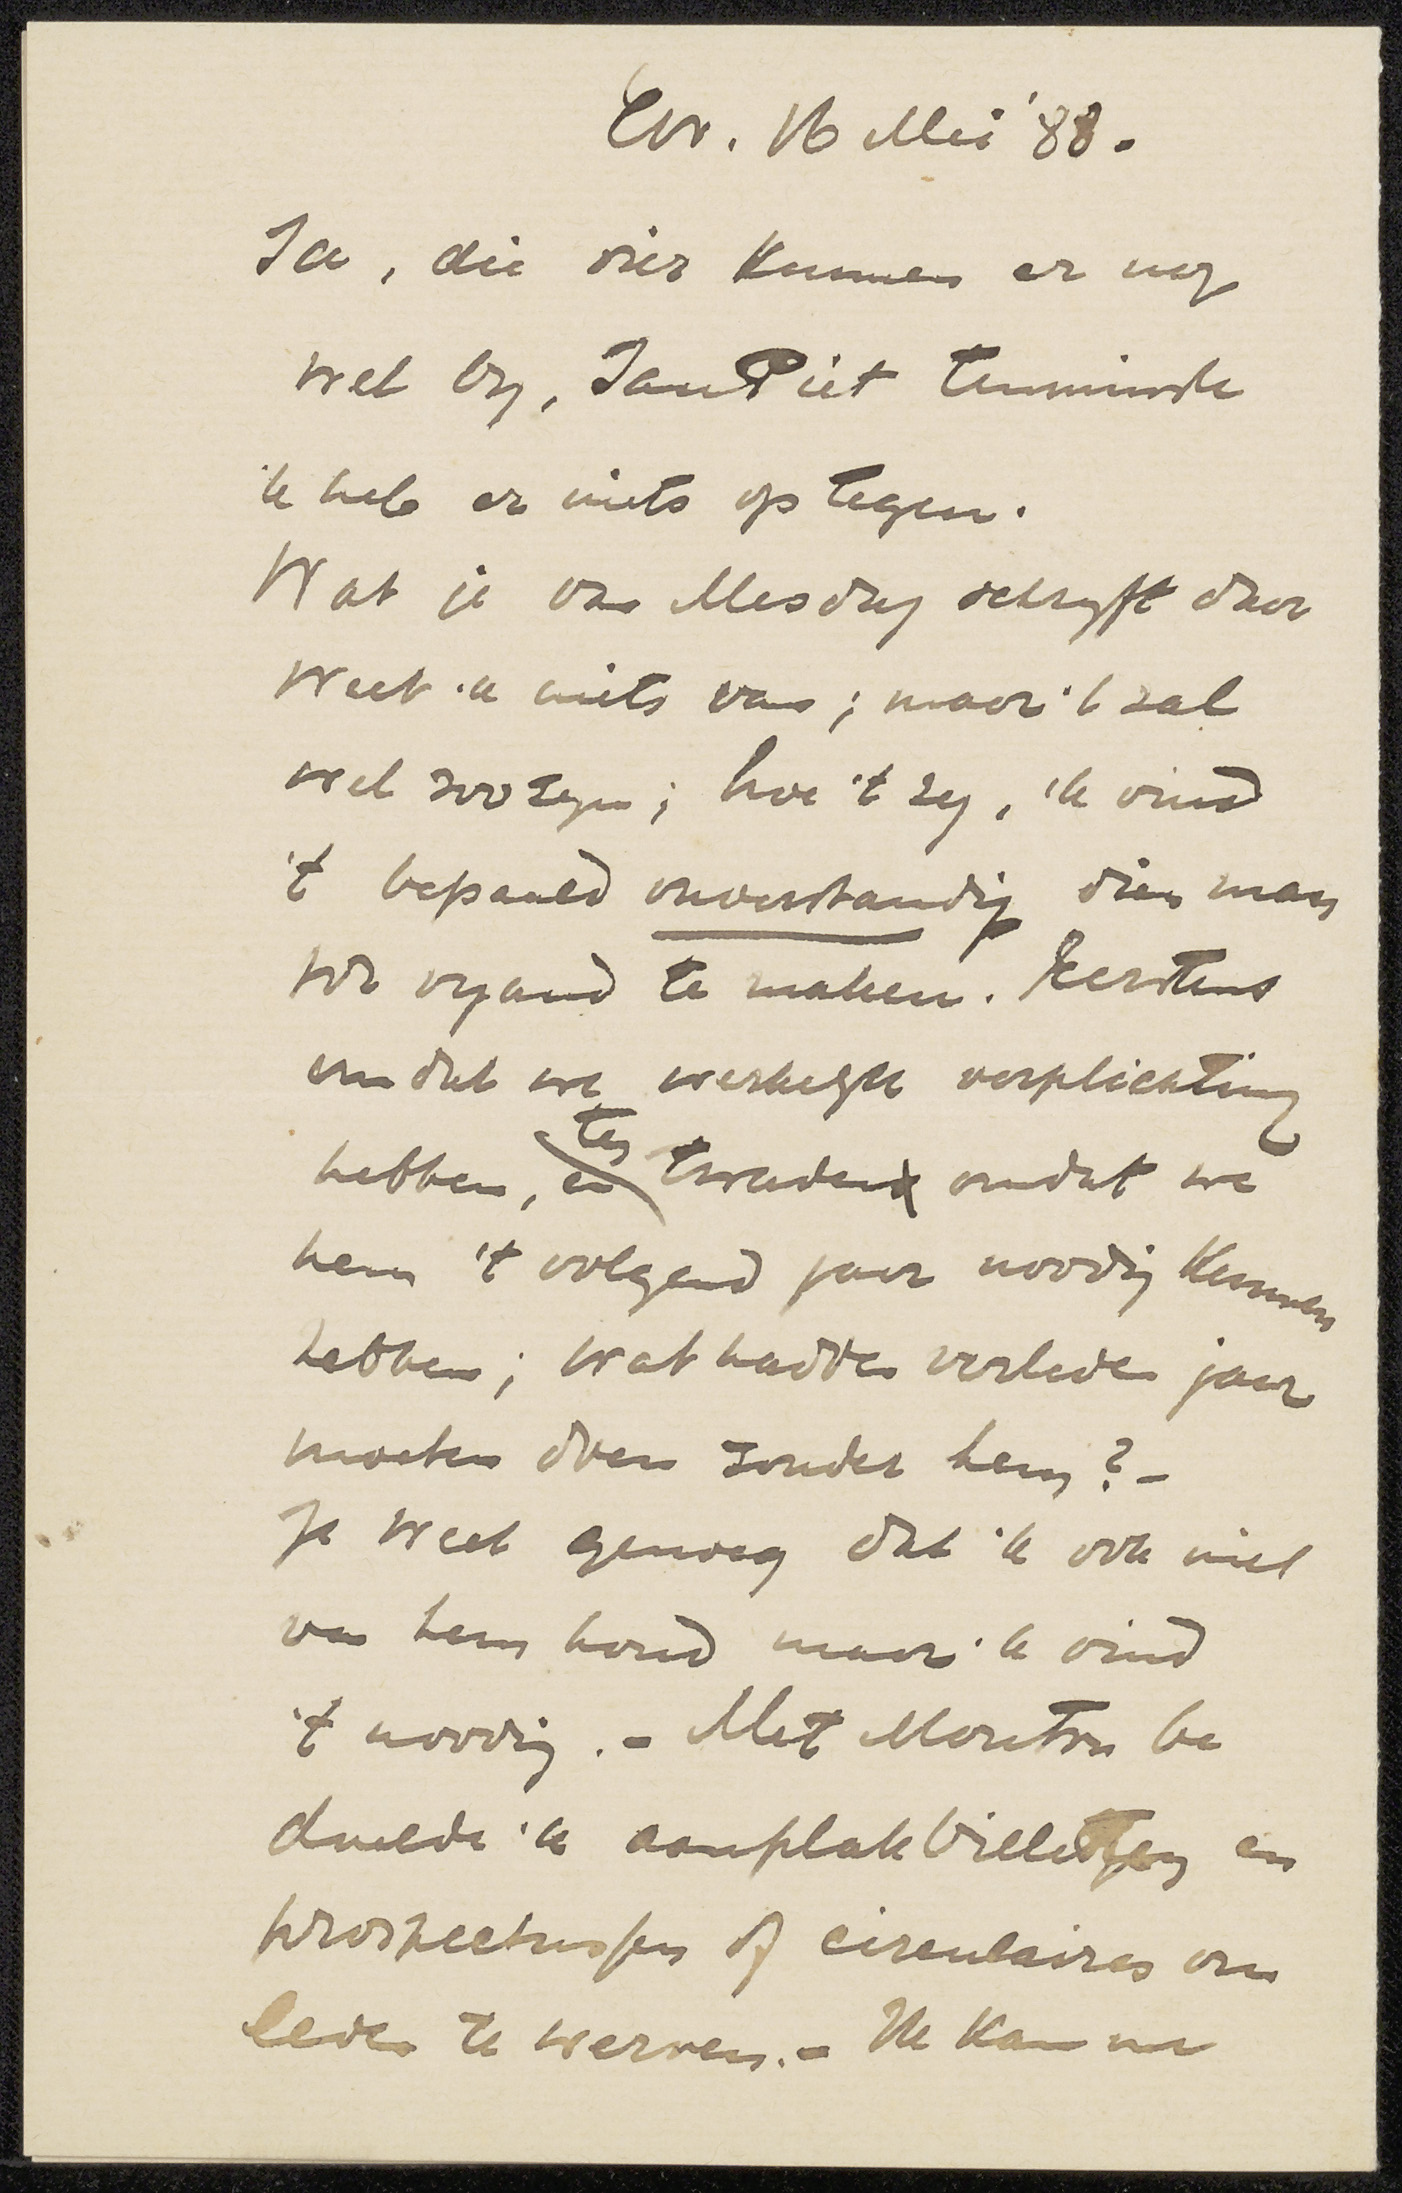 Evr. 16 Mei '88.
Ja, die vier kunnen er nog
wel by, Jan Piet tenminste
ik heb er niets op tegen.
Wat je van Mesdag schryft daar
weet ik niets van; maar 't zal
wel zoo zyn; hoe 't zy, ik vind
't bepaald onverstandig dien man
tot vyand te maken. Eerstens
omdat we werkelyk verplichting
hebben, ten tweede omdat we
hem 't volgend jaar noodig kunnen
hebben; wat hadden verleden jaar
moeten doen zonder hem? -
Je weet genoeg dat ik ook niet
van hem houd maar ik vind
't noodig. - Met Mouton be
doelde ik aanplakbilletten en
prospectussen of circulaires om
leden te werven. - Ik kan me